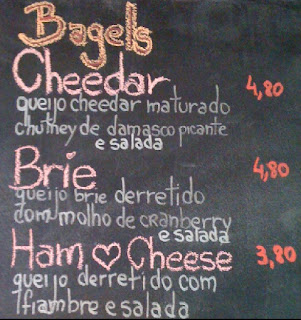 Bagels
Cheedar 4,80
queijo cheedar maturado
chutney de damasco picante
e salada
Brie 4,80
queijo brie derretido
com molho de cranberry
e salada
Ham ♡ Cheese 3,80
queijo derretido com
fiambre e salada